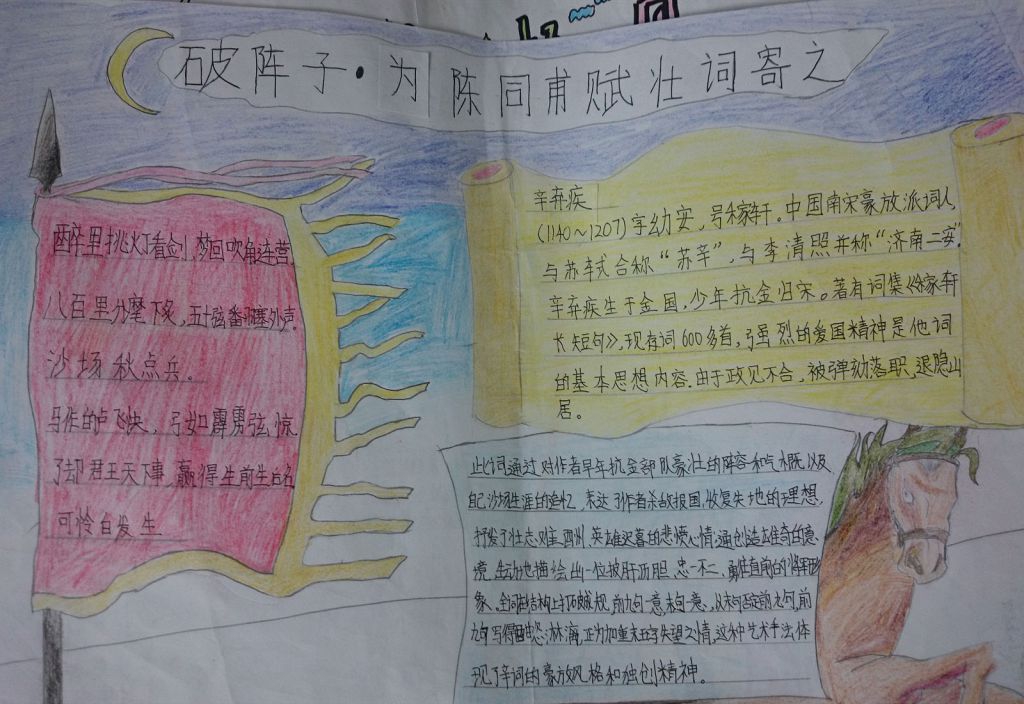 破阵子·为陈同甫赋壮词寄之
醉里挑灯看剑，梦回吹角连营。
八百里分麾下炙，五十弦翻塞外声。
沙场秋点兵。
马作的卢飞快，弓如霹雳弦惊
了却君王天下事，赢得生前生后名
可怜白发生
辛弃疾
（1140～1207）字幼安，号稼轩。中国南宋豪放派词人
与苏轼合称“苏辛”，与李清照并称“济南二安”。
辛弃疾生于金国，少年抗金归宋。著有词集《稼轩
长短句》，现存词600多首，强烈的爱国精神是他词
的基本思想内容。由于政见不合，被弹劾落职，退隐山
居。
此词通过对作者早年抗金部队豪壮的阵容和气概以及
自己沙场生涯的追忆，表达了作者杀敌报国，收复失地的理想，
抒发了壮志难酬，英雄迟暮的悲愤心情，通创造雄奇的意
境，生动地描绘出一位披肝沥胆、忠一不二、勇往直前的将军形
象。全词在结构上打破成规，前九句一意，末句一意，从末句否定前九句，前
九句写得酣恣淋漓，正为加重末五字失望之情，这种艺术手法体
现了辛词的豪放风格和独创精神。